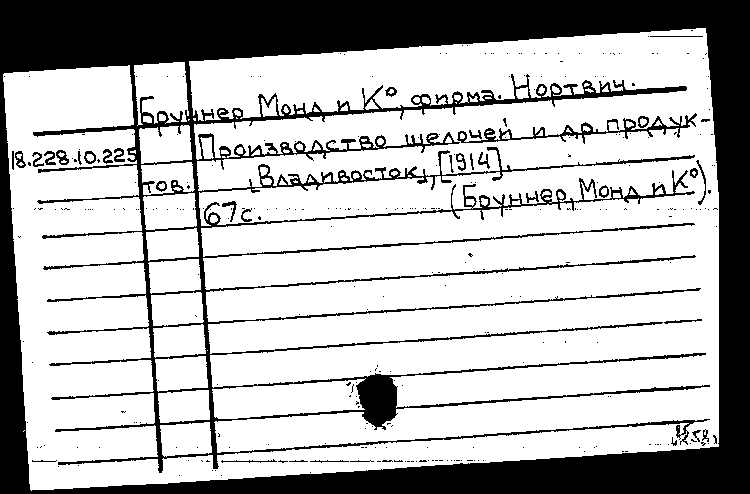 Бруннер, Монд и К°, фирма. Нортвич.
18.228.10.225 Производство щелочей и др. продук-
тов. [Владивосток], [1914].
67с. (Бруннер, Монд и К°).